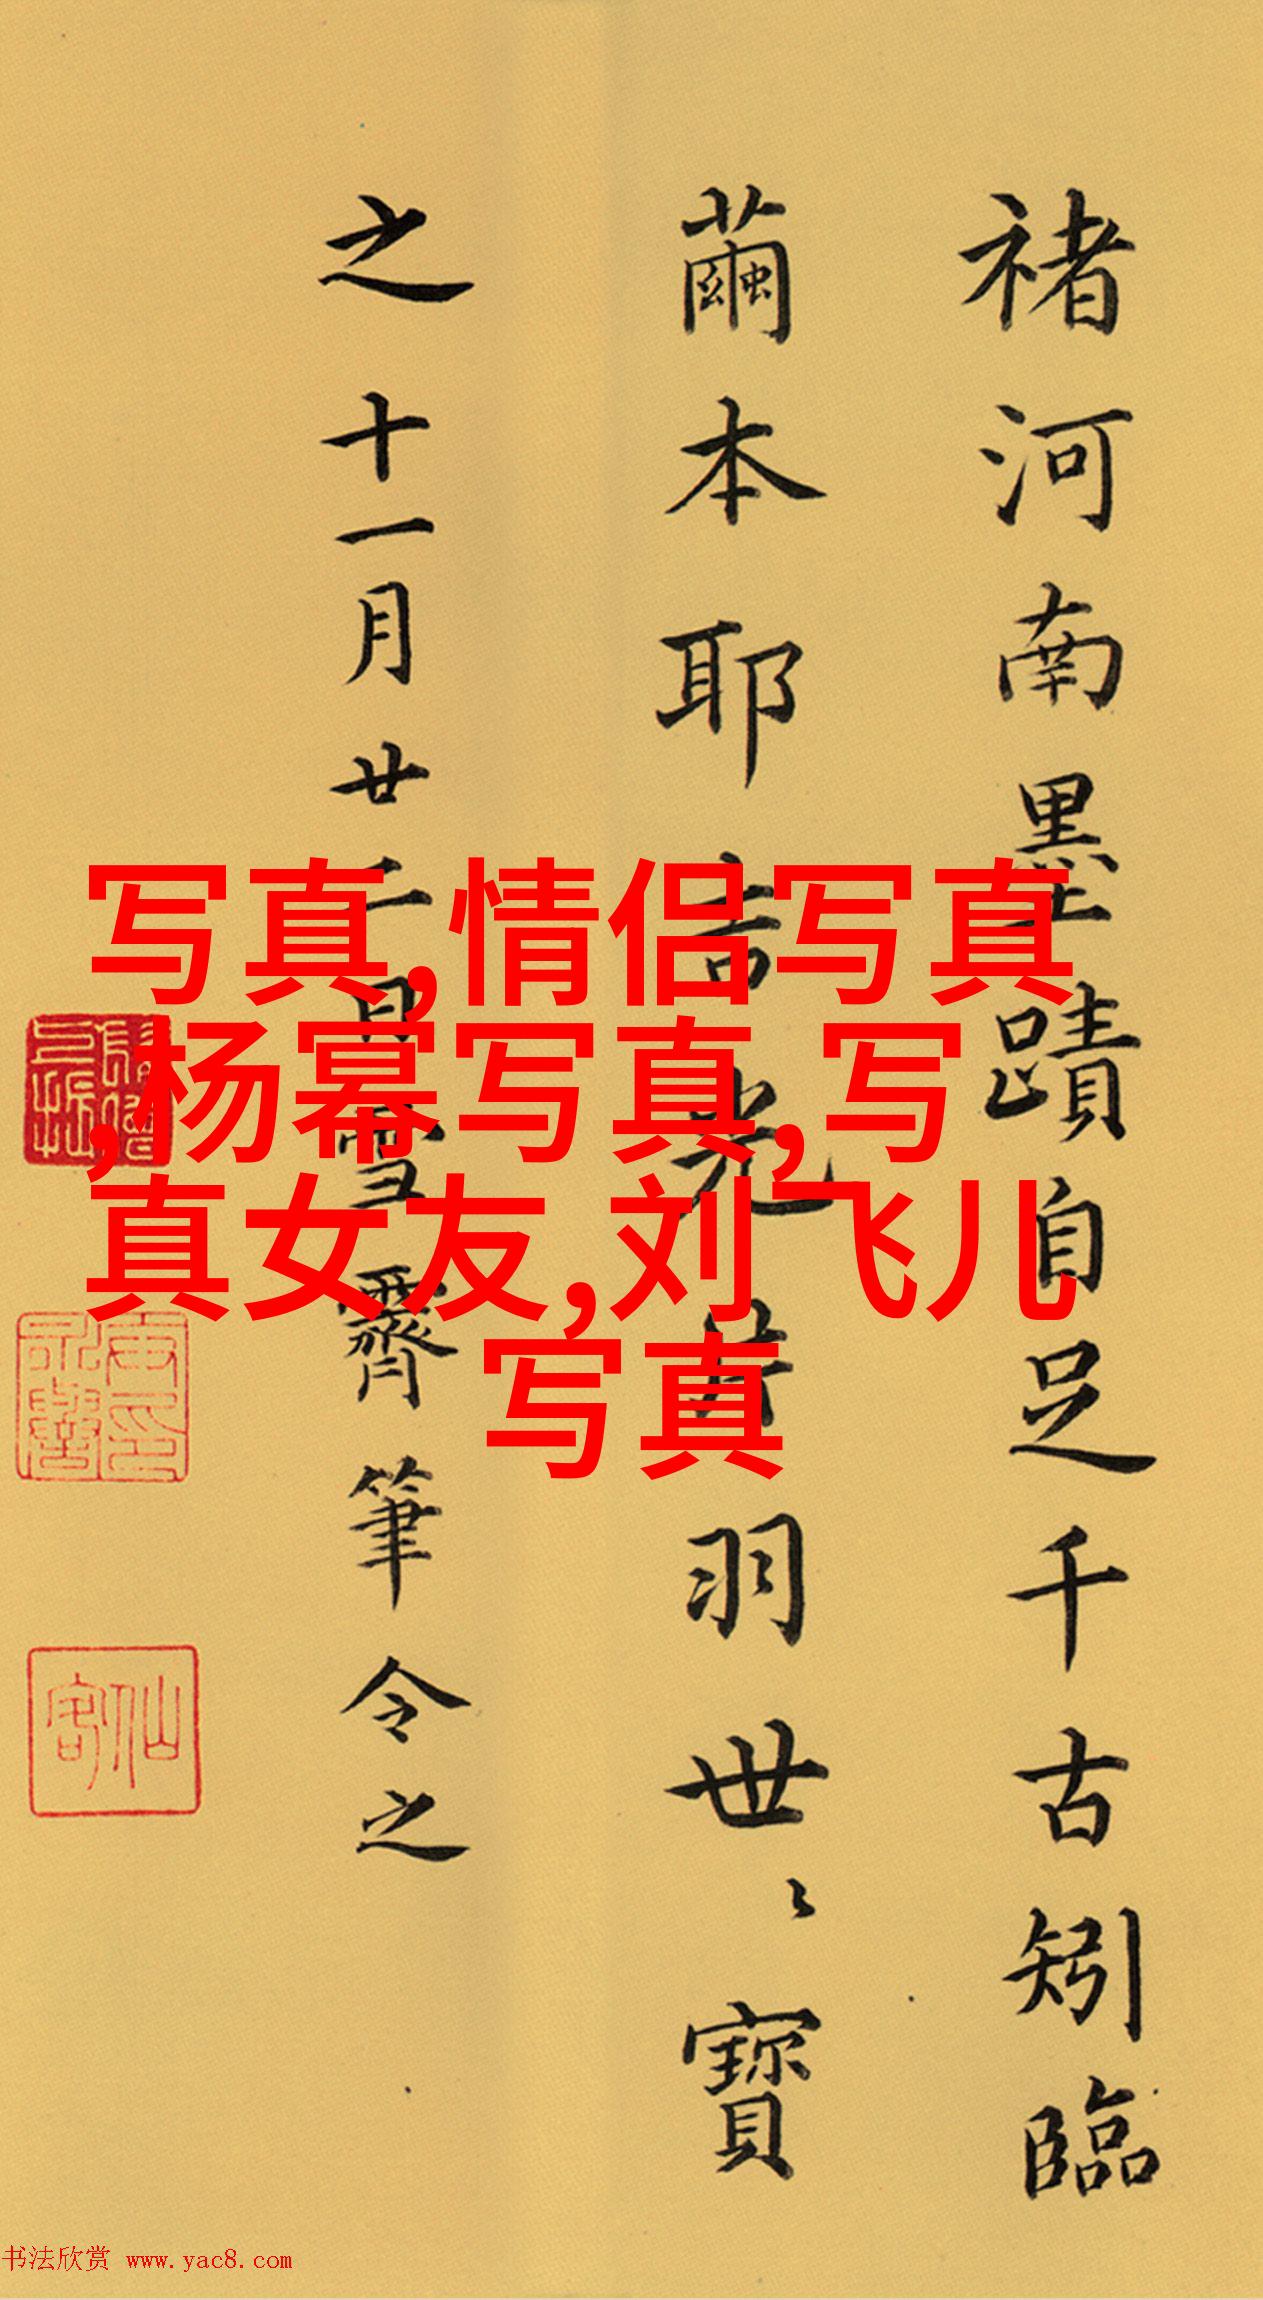 褚河南墨蹟自足千古矧臨
繭本耶吉光片羽世〻寶
之十一月廿二日雪霽筆令之
写真,情侣写真
,杨幂写真,写
真女友,刘飞儿
写真
仙客
书法欣赏 www.yac8.com